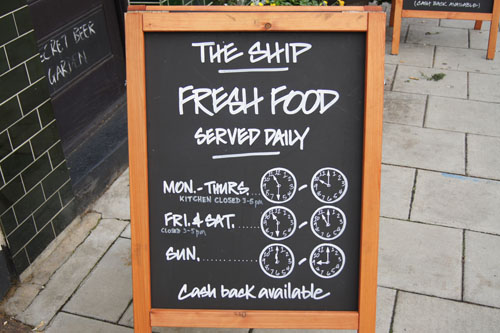 (CASH BACK AVAILABLE)
SECRET BEER
GARDEN
THE SHIP
FRESH FOOD
SERVED DAILY
MON.-THURS. ... -
KITCHEN CLOSED 3-5pm
FRI. & SAT. ...... -
CLOSED 3-5pm
SUN. ............ -
Cash back available